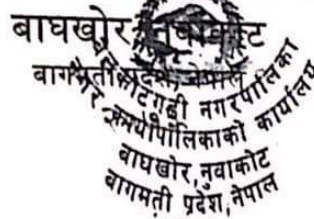 बाघखोर, नुवाकोट
बागमती प्रदेश, नेपाल
नगरपालिका
नगर कार्यपालिकाको कार्यालय
बाघखोर, नुवाकोट
बागमती प्रदेश, नेपाल